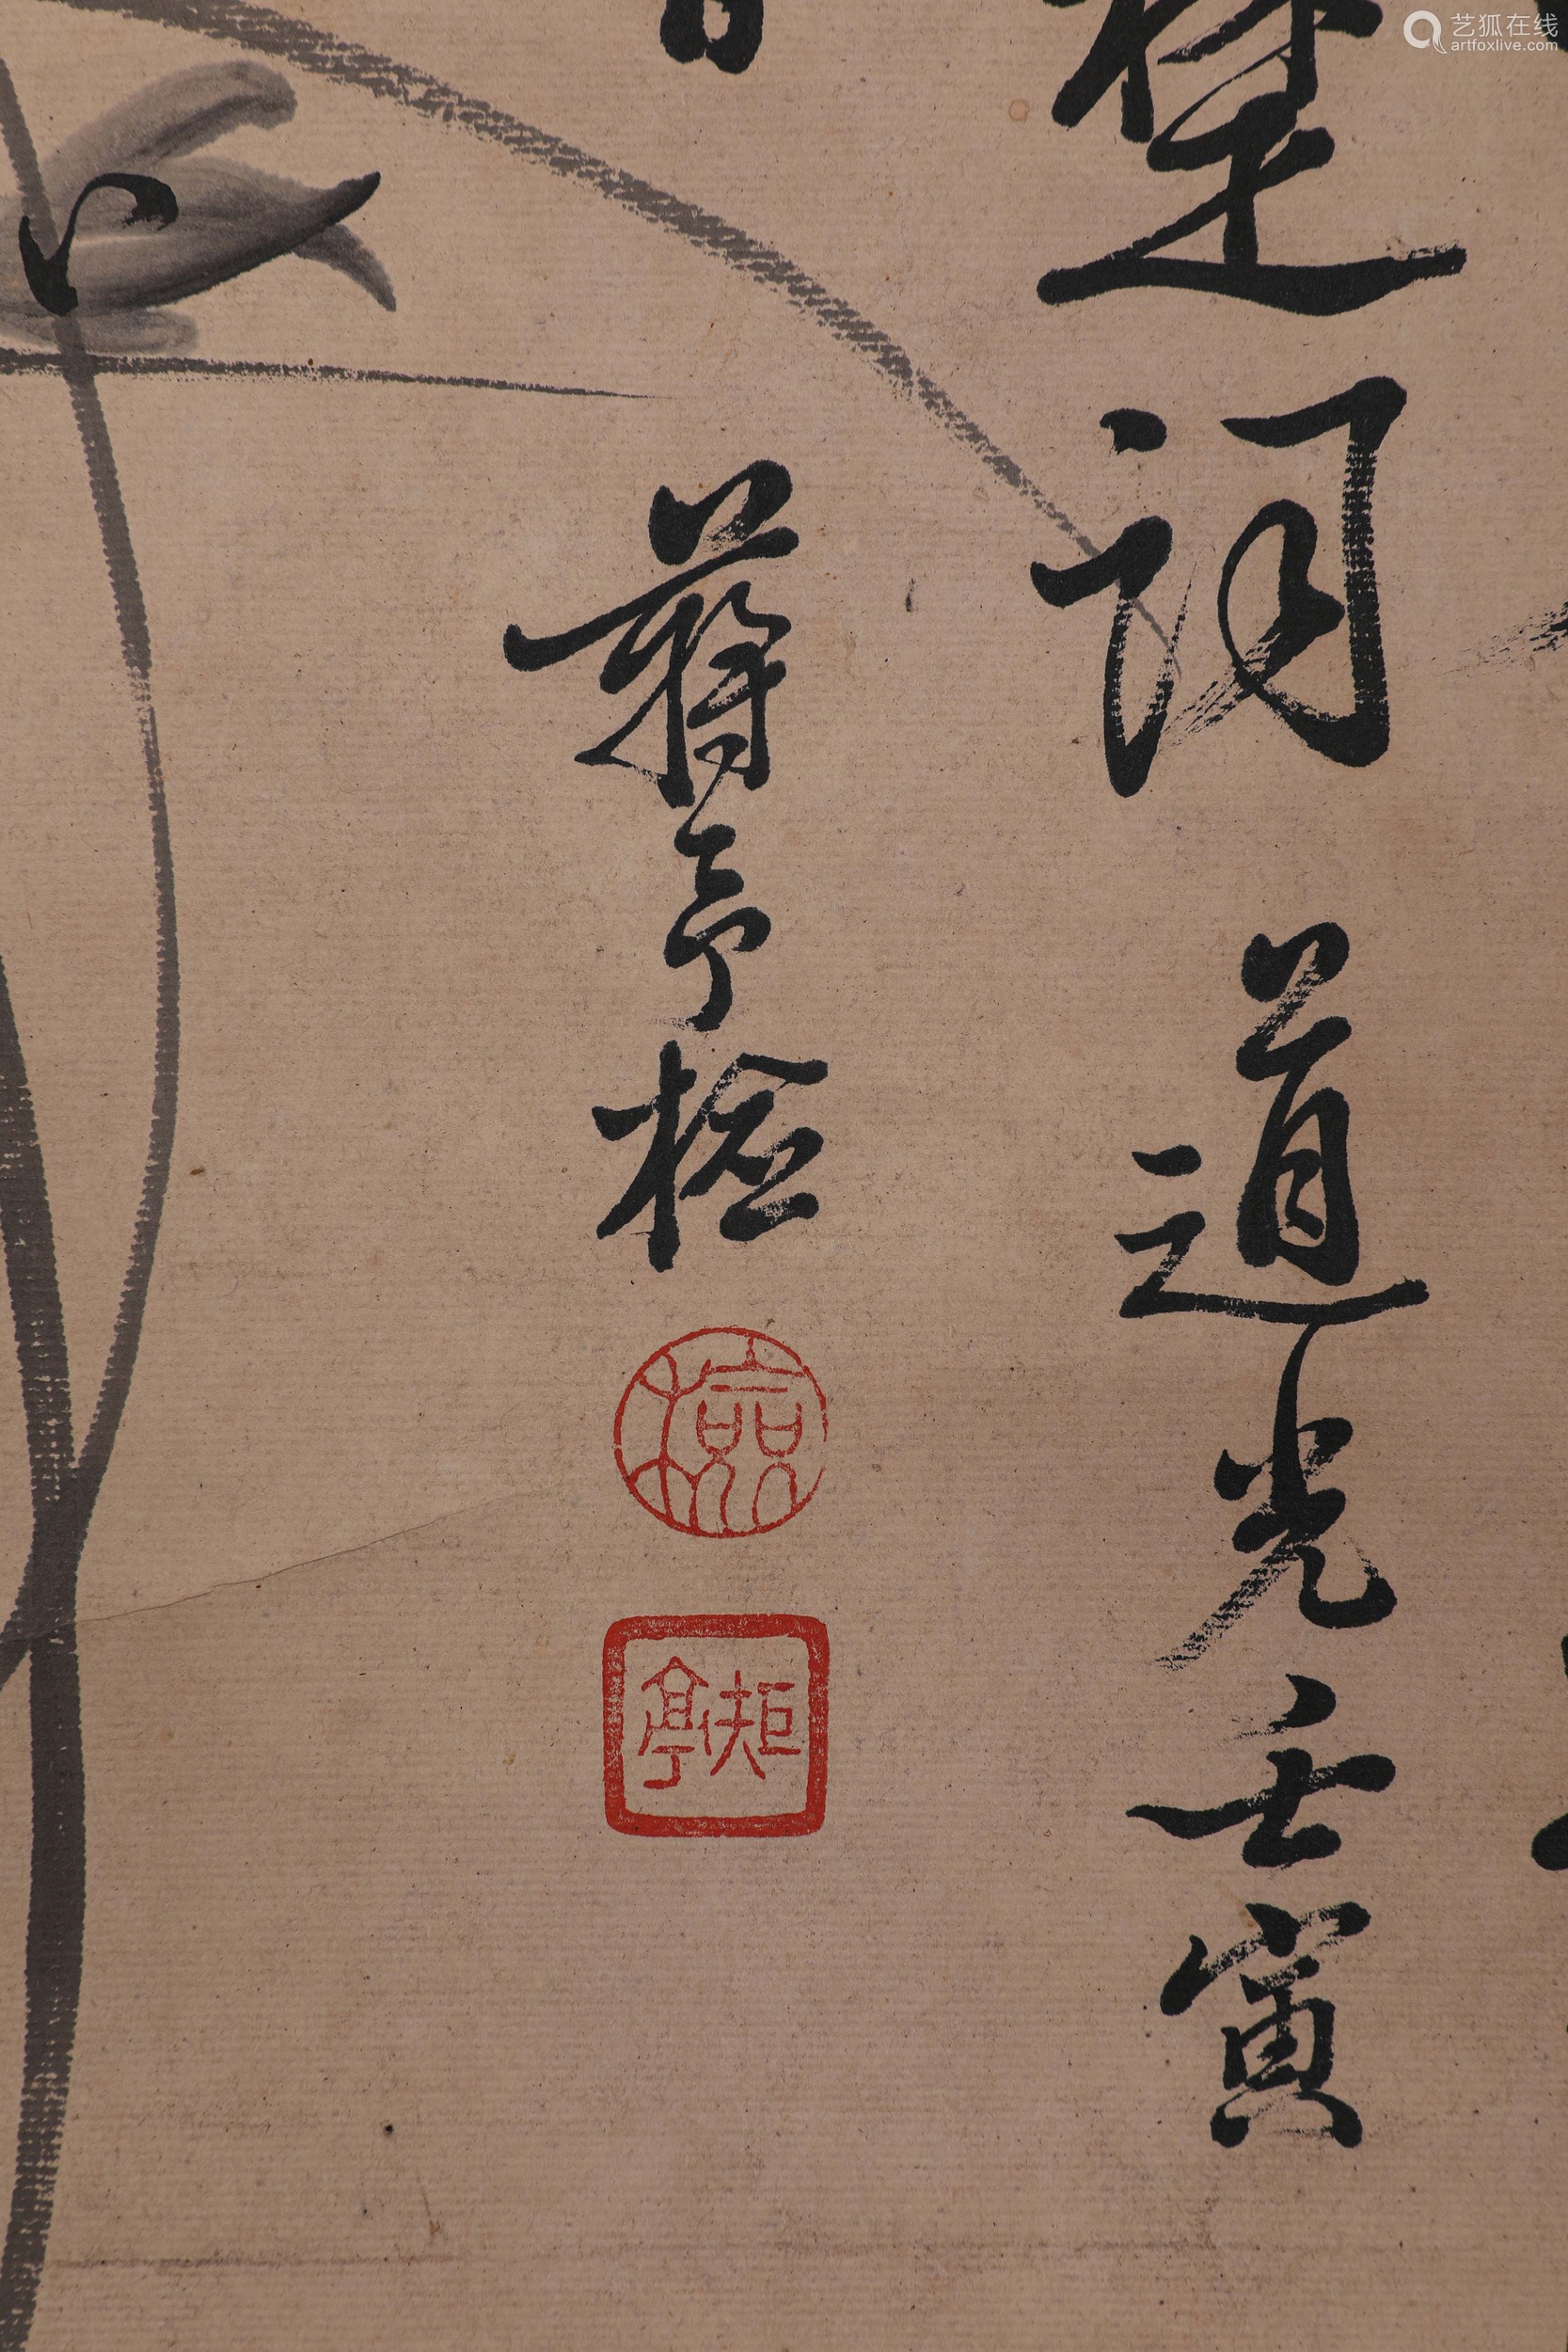 楚词 道光壬寅
蒋予检
检
矩亭
艺狐在线
artfoxlive.com